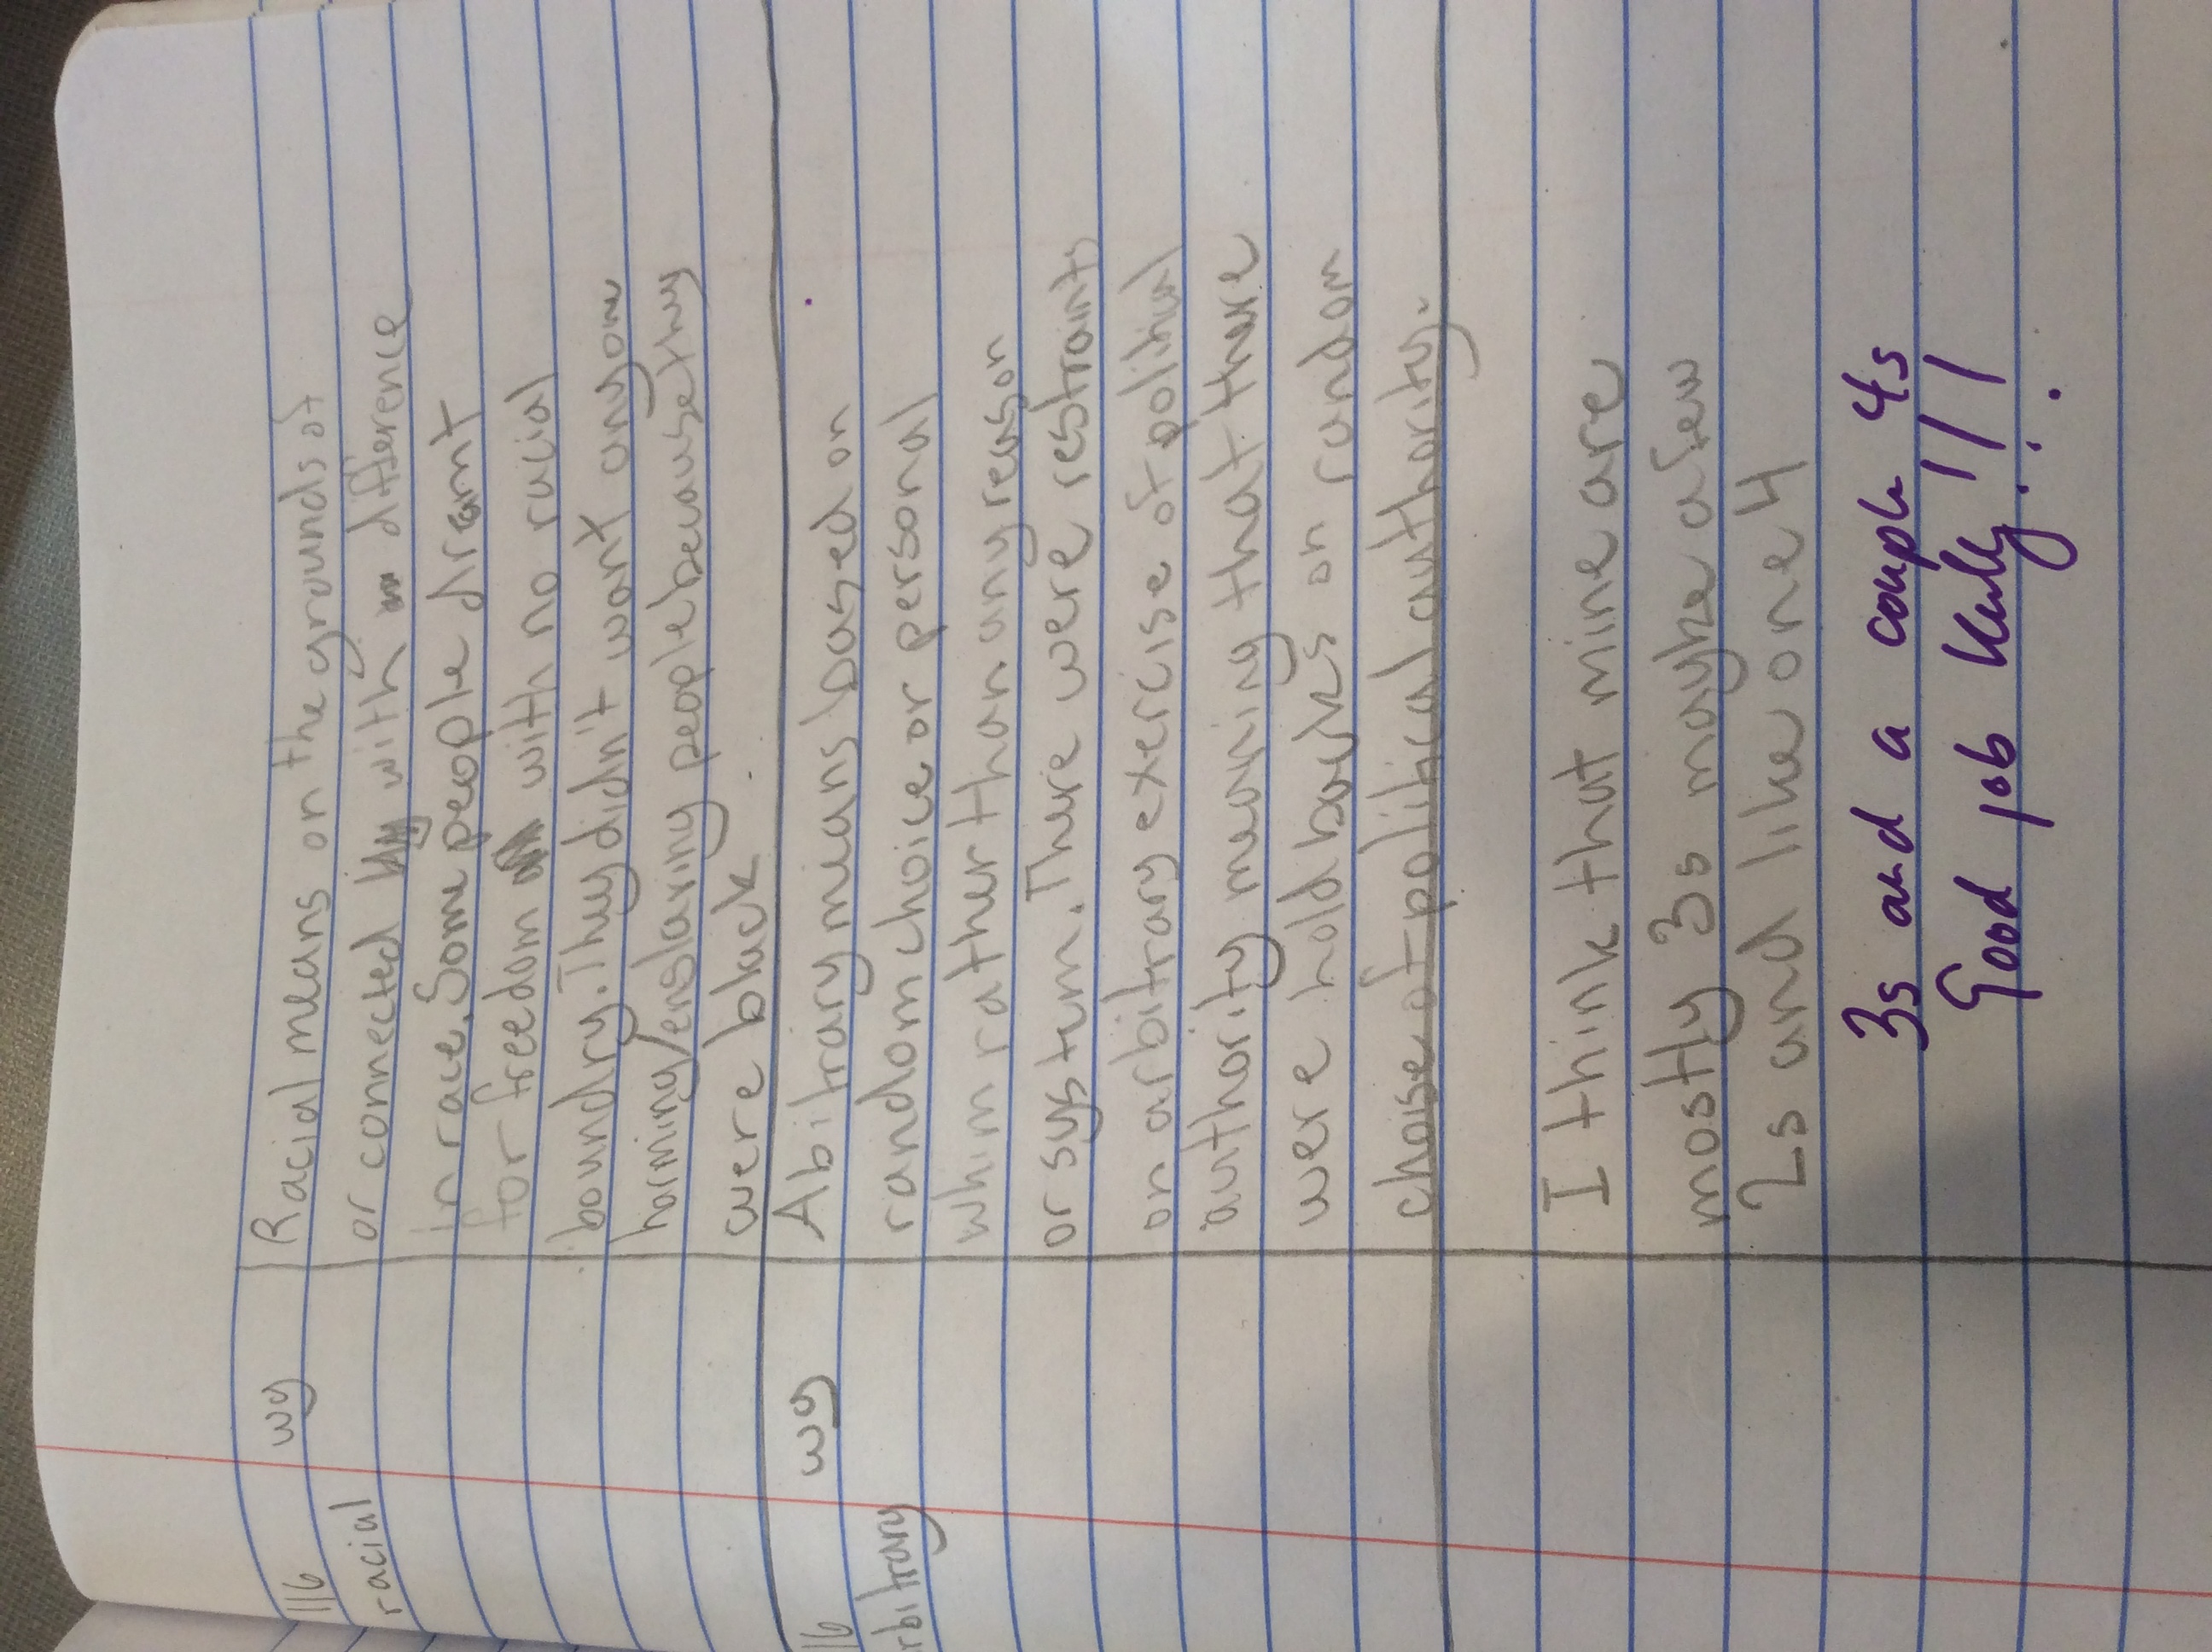 116 wg Racial means on the grounds of
racial or connected with difference
in race. Some people dramt
for freedom with no racial
boundry. They didn't want anyone
harming/enslaving people because they
were black
16 wg Abitrary means based on
rbitrary random choice or personal
whim rather than any reason
or system. There were restraints
on arbitrary exercise of political
authority meaning that there
were hold backs on random
choise of political authority.
I think that mine are
mostly 3s maybe a few
2s and like one 4
3s and a couple 4s
Good job Kelly!!!